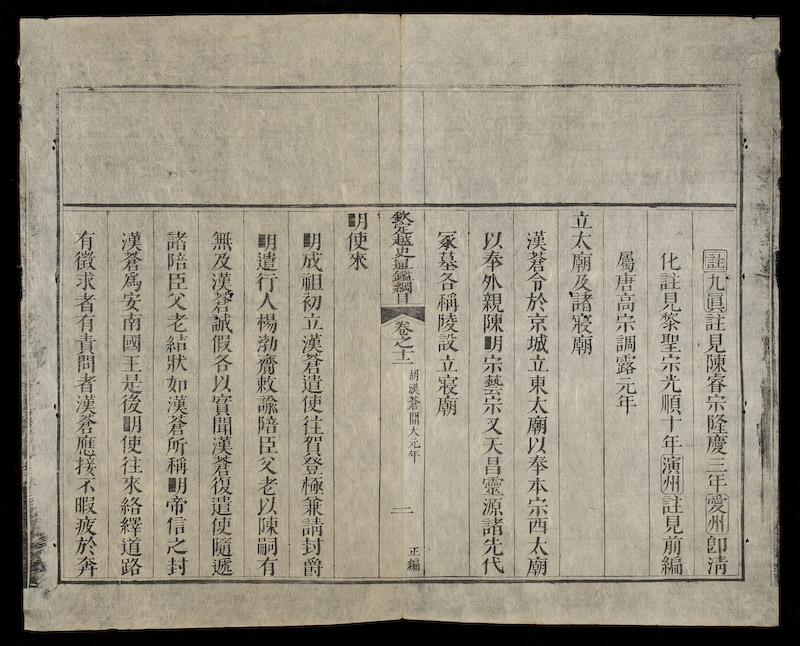 註九眞註見陳睿宗隆慶三年愛州卽清
化註見黎聖宗光順十年演州註見前編
屬唐高宗調露元年
立太廟及諸寢廟
漢蒼令於京城立東太廟以奉本宗西太廟
以奉外親陳明宗藝宗又天昌靈源諸先代
冢墓各稱陵設立寢廟
欽定越史通鑑綱目
卷之十二
胡漢蒼開大元年
二
正編
明使來
明成祖初立漢蒼遣使往賀登極兼請封爵
明遣行人楊渤齎敕諭陪臣父老以陳嗣有
無及漢蒼誠假各以實聞漢蒼復遣使隨遞
諸陪臣父老結狀如漢蒼所稱明帝信之封
漢蒼爲安南國王是後明使往來絡繹道路
有徵求者有責問者漢蒼應接不暇疲於奔